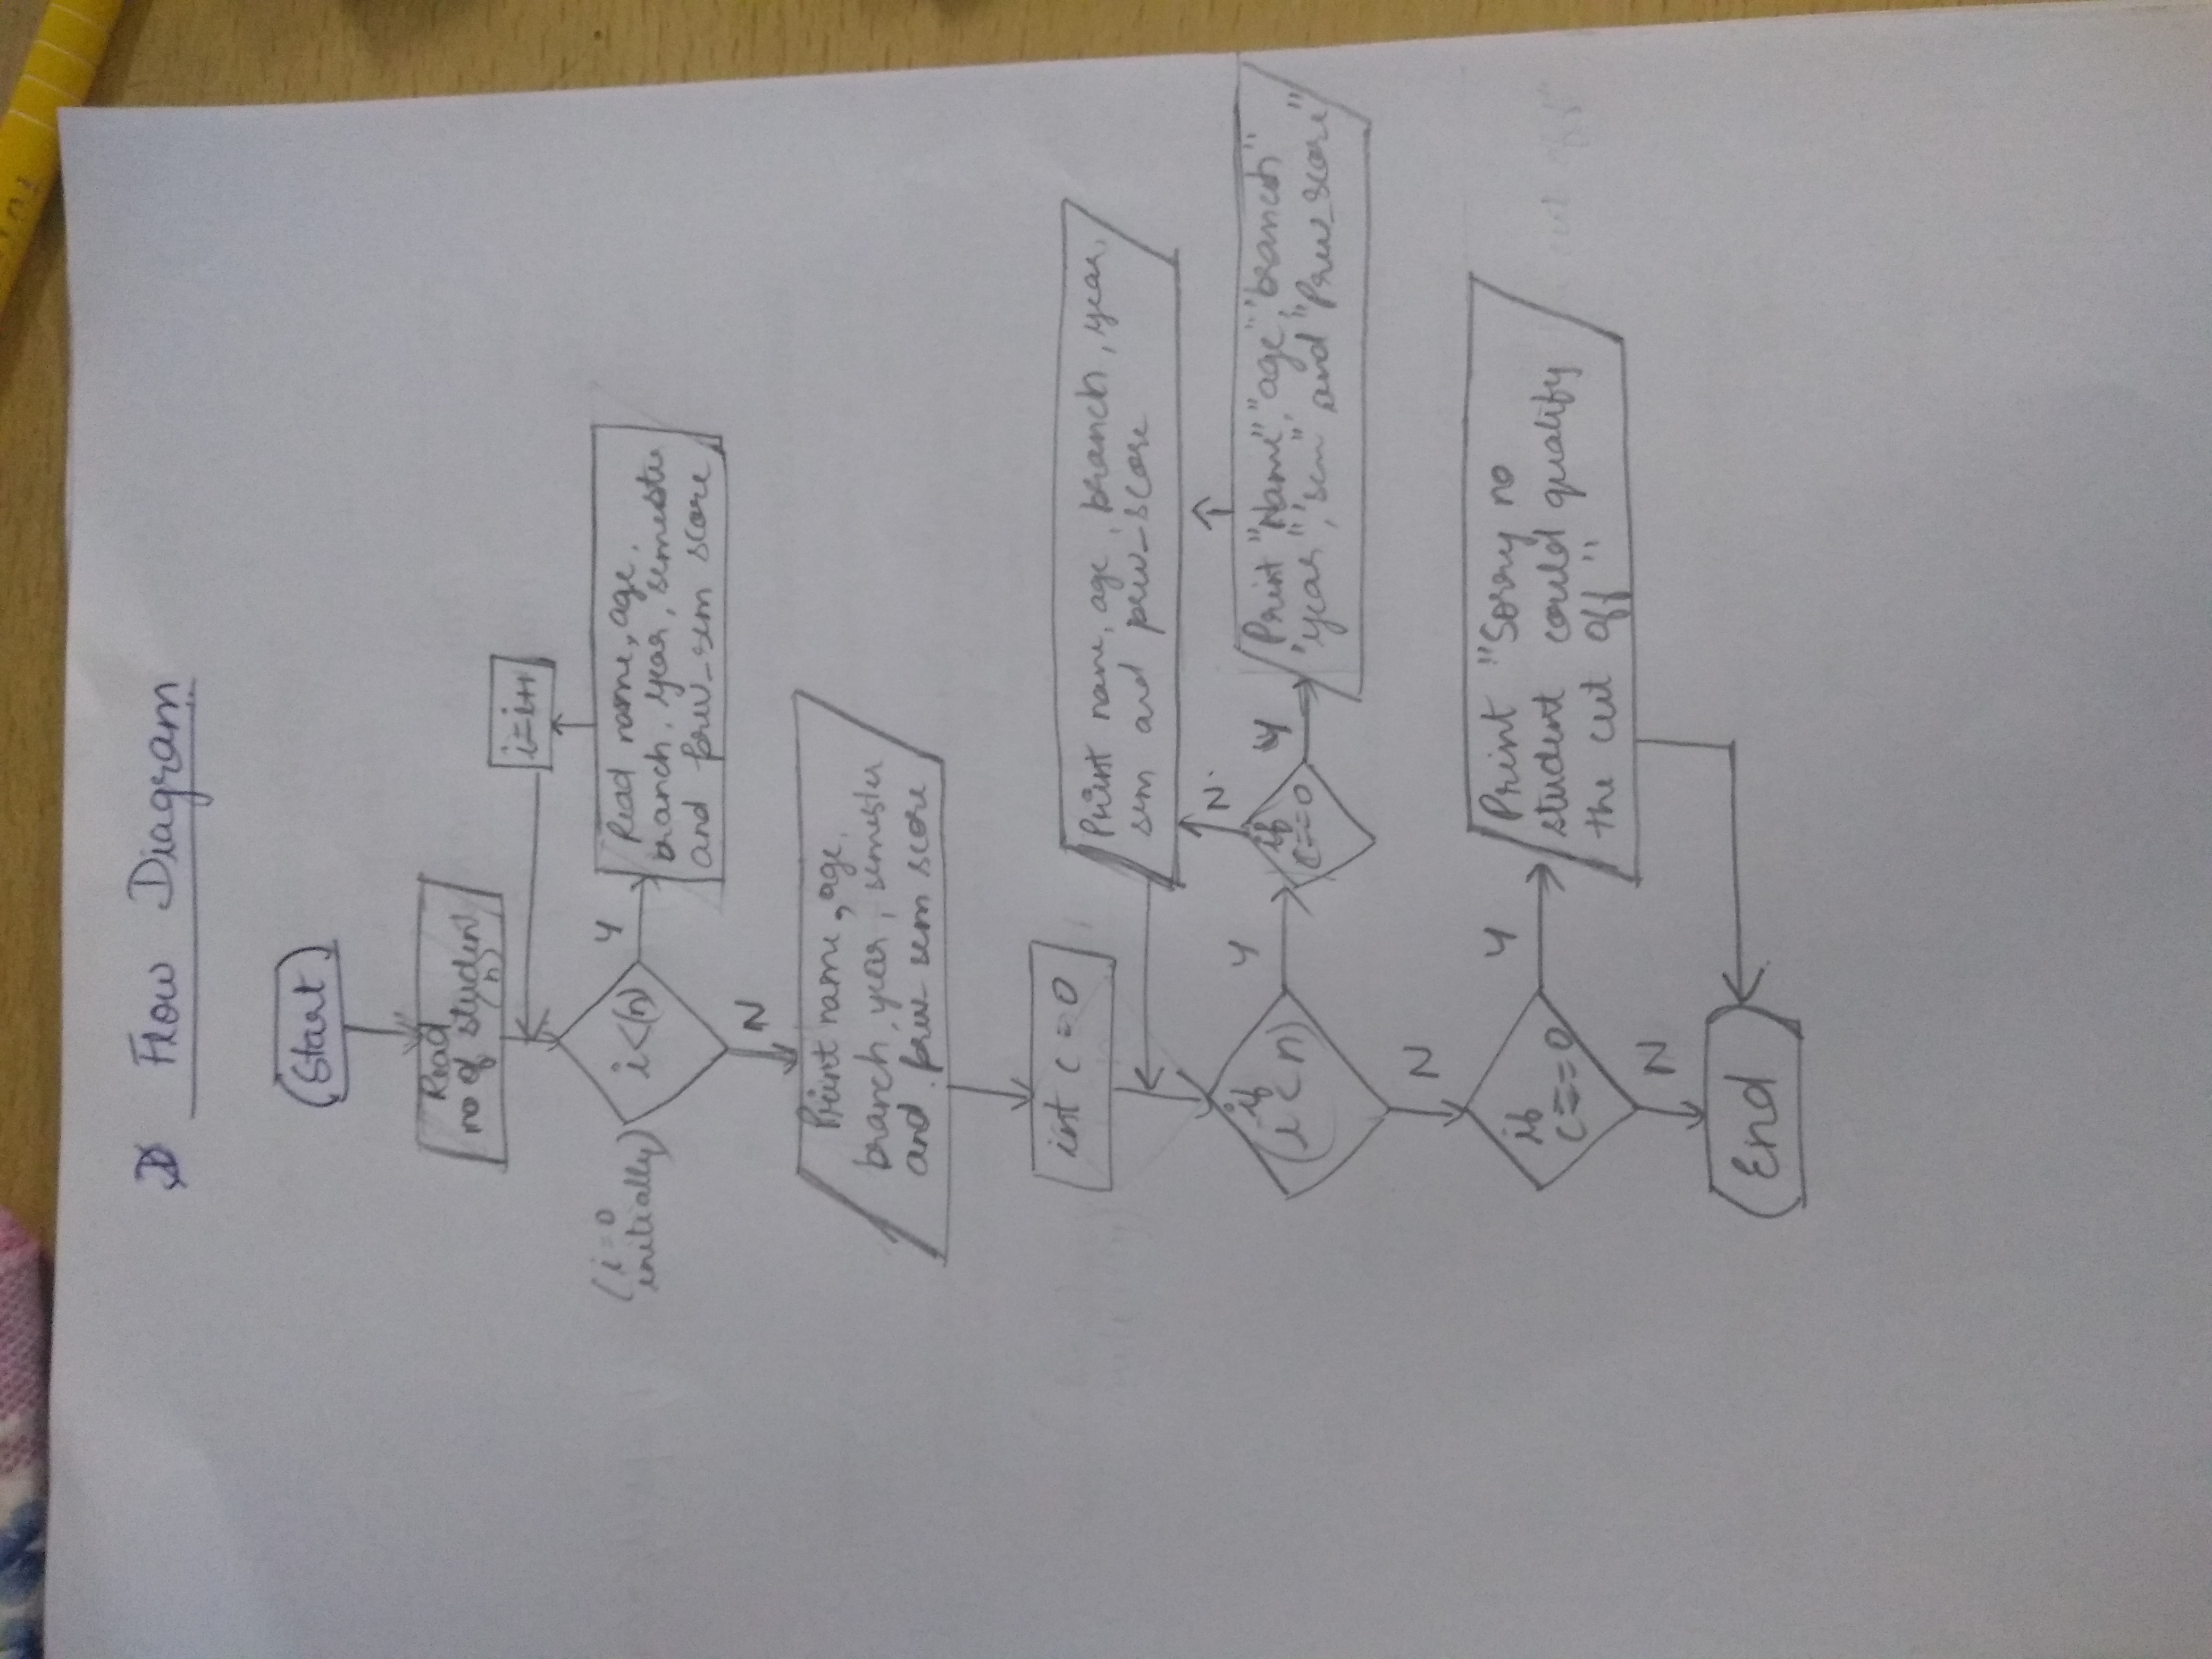 Flow Diagram
Start
Read
no of student
(n)
i=i++
(i=0
initially)
i<(n)
Y
Read name, age,
branch, year, semester
and prev_sem score
N
Print name, age,
branch, year, semester
and prev_sem score
int c=0
Print name, age, branch, year,
sem and prev_score
N
if
(i<n)
Y
if
c==0
Y
Print "Name", "age", "branch"
"year", "sem" and "Prev_score"
N
if
c==0
Y
Print "Sorry no
student could qualify
the cut off"
N
End